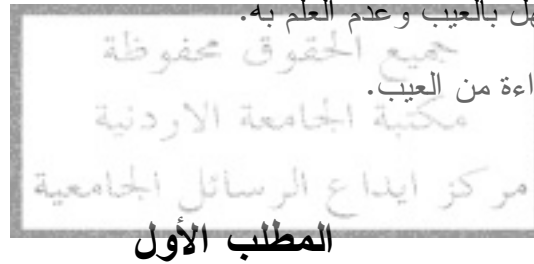 بالعيب وعدم العلم به.
جميع الحقوق محفوظة
من العيب.
مكتبة الجامعة الاردنية
مركز ايداع الرسائل الجامعية
المطلب الأول